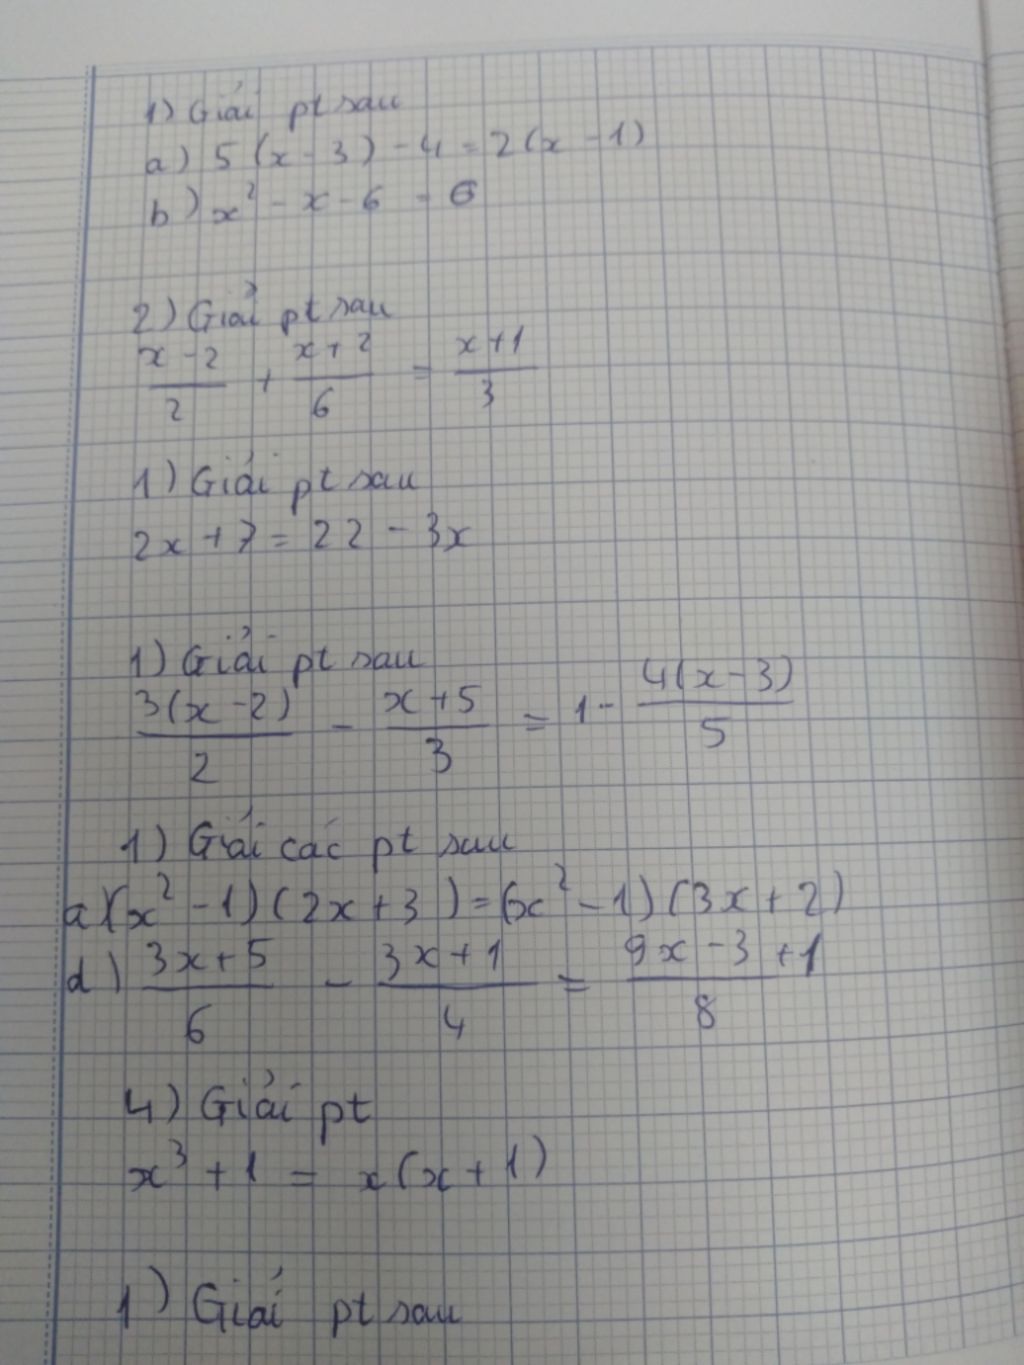 1) Giải pt sau
a) 5(x - 3) - 4 = 2(x - 1)
b) x² - x - 6 = 6
2) Giải pt sau
(x - 2)/2 + (x + 2)/6 = (x + 1)/3
1) Giải pt sau
2x + 7 = 22 - 3x
1) Giải pt sau
3(x - 2)/2 - (x + 5)/3 = 1 - 4(x - 3)/5
1) Giải các pt sau
a) (x² - 1)(2x + 3) = (x² - 1)(3x + 2)
d) (3x + 5)/6 - (3x + 1)/4 = (9x - 3)/8 + 1
4) Giải pt
x³ + 1 = x(x + 1)
1) Giải pt sau